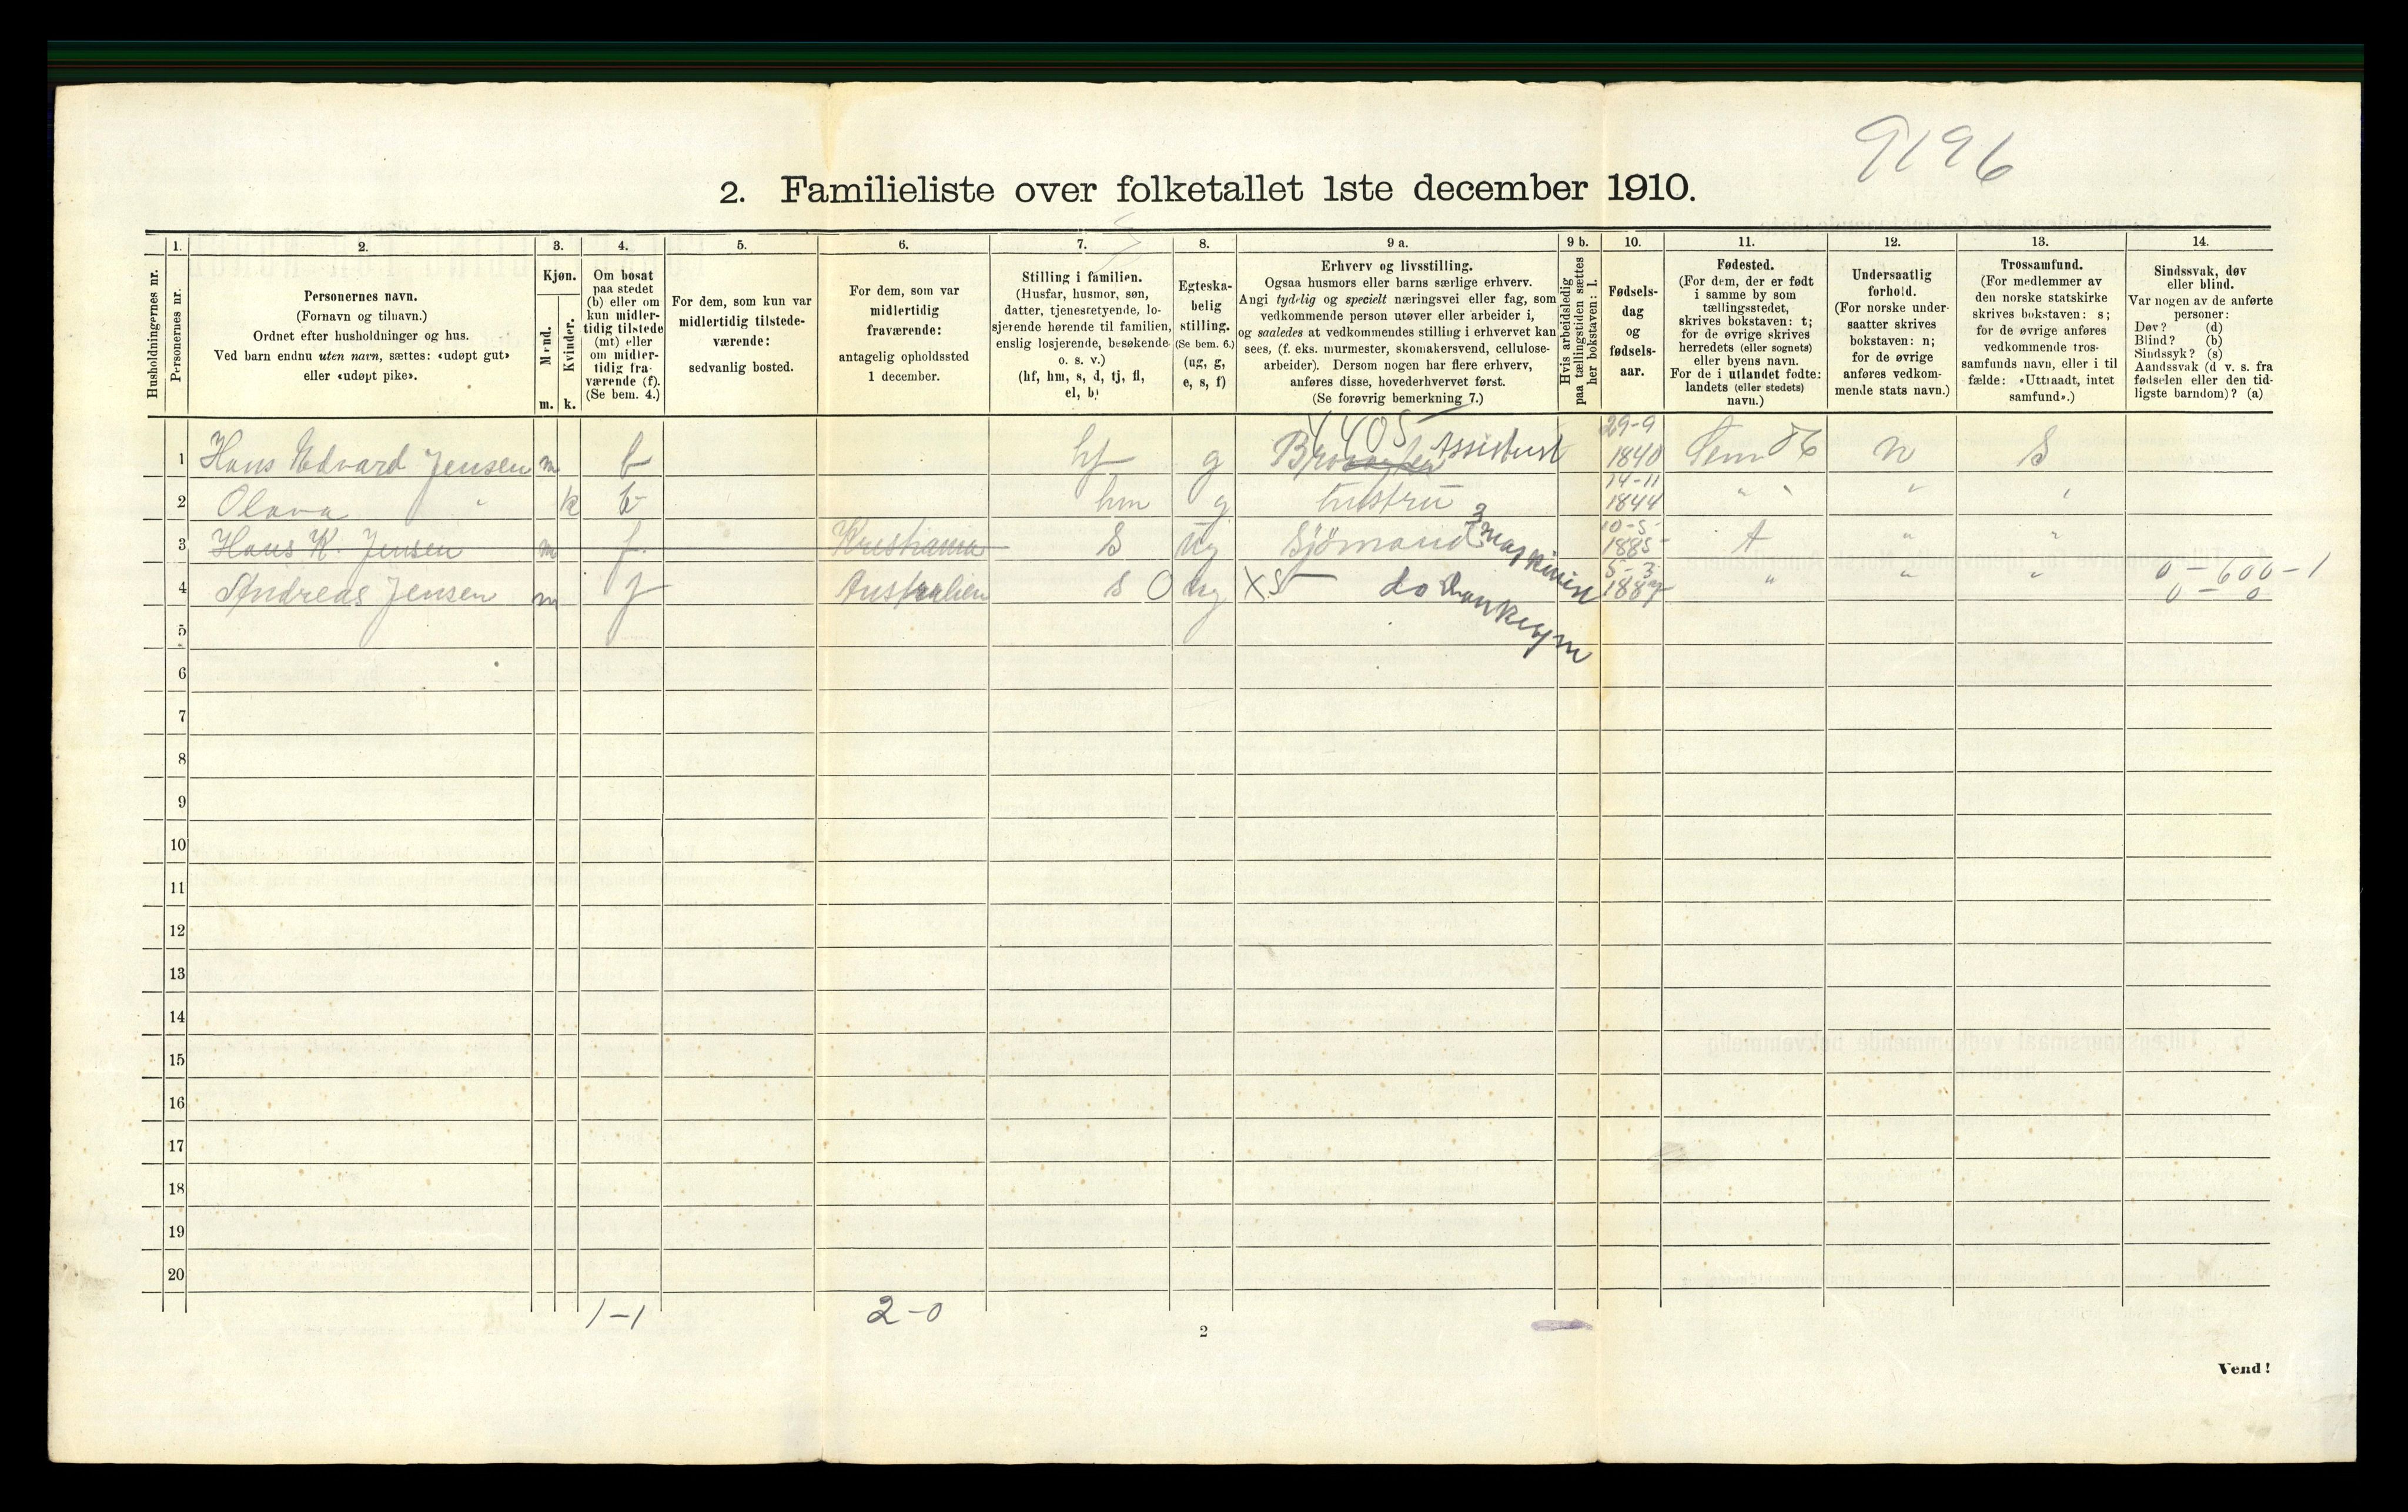 9196
2. Familieliste over folketallet 1ste december 1910.
Husholdningernes nr.
1. Personernes nr.
2. Personernes navn. (Fornavn og tilnavn.) Ordnet efter husholdninger og hus. Ved barn endnu uten navn, sættes: «udøpt gut» eller «udøpt pike».
3. Kjøn. Mænd. m. Kvinder. k.
4. Om bosat paa stedet (b) eller om kun midlertidig tilstede (mt) eller om midlertidig fraværende (f). (Se bem. 4.)
5. For dem, som kun var midlertidig tilstedeværende: sedvanlig bosted.
6. For dem, som var midlertidig fraværende: antagelig opholdssted 1 december.
7. Stilling i familien. (Husfar, husmor, søn, datter, tjenestetyende, losjerende hørende til familien, enslig losjerende, besøkende o. s. v.) (hf, hm, s, d, tj, fl, el, b)
8. Egteskabelig stilling. (Se bem. 6.) (ug, g, e, s, f)
9 a. Erhverv og livsstilling. Ogsaa husmors eller barns særlige erhverv. Angi tydelig og specielt næringsvei eller fag, som vedkommende person utøver eller arbeider i, og saaledes at vedkommendes stilling i erhvervet kan sees, (f. eks. murmester, skomakersvend, cellulosearbeider). Dersom nogen har flere erhverv, anføres disse, hovederhvervet først. (Se forøvrig bemerkning 7.)
9 b. Hvis arbeidsledig paa tællingstiden sættes her bokstaven: l.
10. Fødselsdag og fødselsaar.
11. Fødested. (For dem, der er født i samme by som tællingsstedet, skrives bokstaven: t; for de øvrige skrives herredets (eller sognets) eller byens navn. For de i utlandet fødte: landets (eller stedets) navn.)
12. Undersaatlig forhold. (For norske undersaatter skrives bokstaven: n; for de øvrige anføres vedkommende stats navn.)
13. Trossamfund. (For medlemmer av den norske statskirke skrives bokstaven: s; for de øvrige anføres vedkommende trossamfunds navn, eller i tilfælde: «Uttraadt, intet samfund».)
14. Sindssvak, døv eller blind. Var nogen av de anførte personer: Døv? (d) Blind? (b) Sindssyk? (s) Aandssvak (d v. s. fra fødselen eller den tidligste barndom)? (a)
4405
1 Hans Edvard Jensen m b hf g Assistent 29-9 1840 Sem n S
2 Olava " k b hm g hustru 14-11 1844 " " " "
3 Hans K. Jensen m f Kristiania S ug Sjömand 3 maskinist 10-5-1885 t " "
4 Andreas Jensen m f Australien s O ug X5 do 5-3 1887 " " " 0-600-1
0-0
5
6
7
8
9
10
11
12
13
14
15
16
17
18
19
20
1-1 2-0
2
Vend!